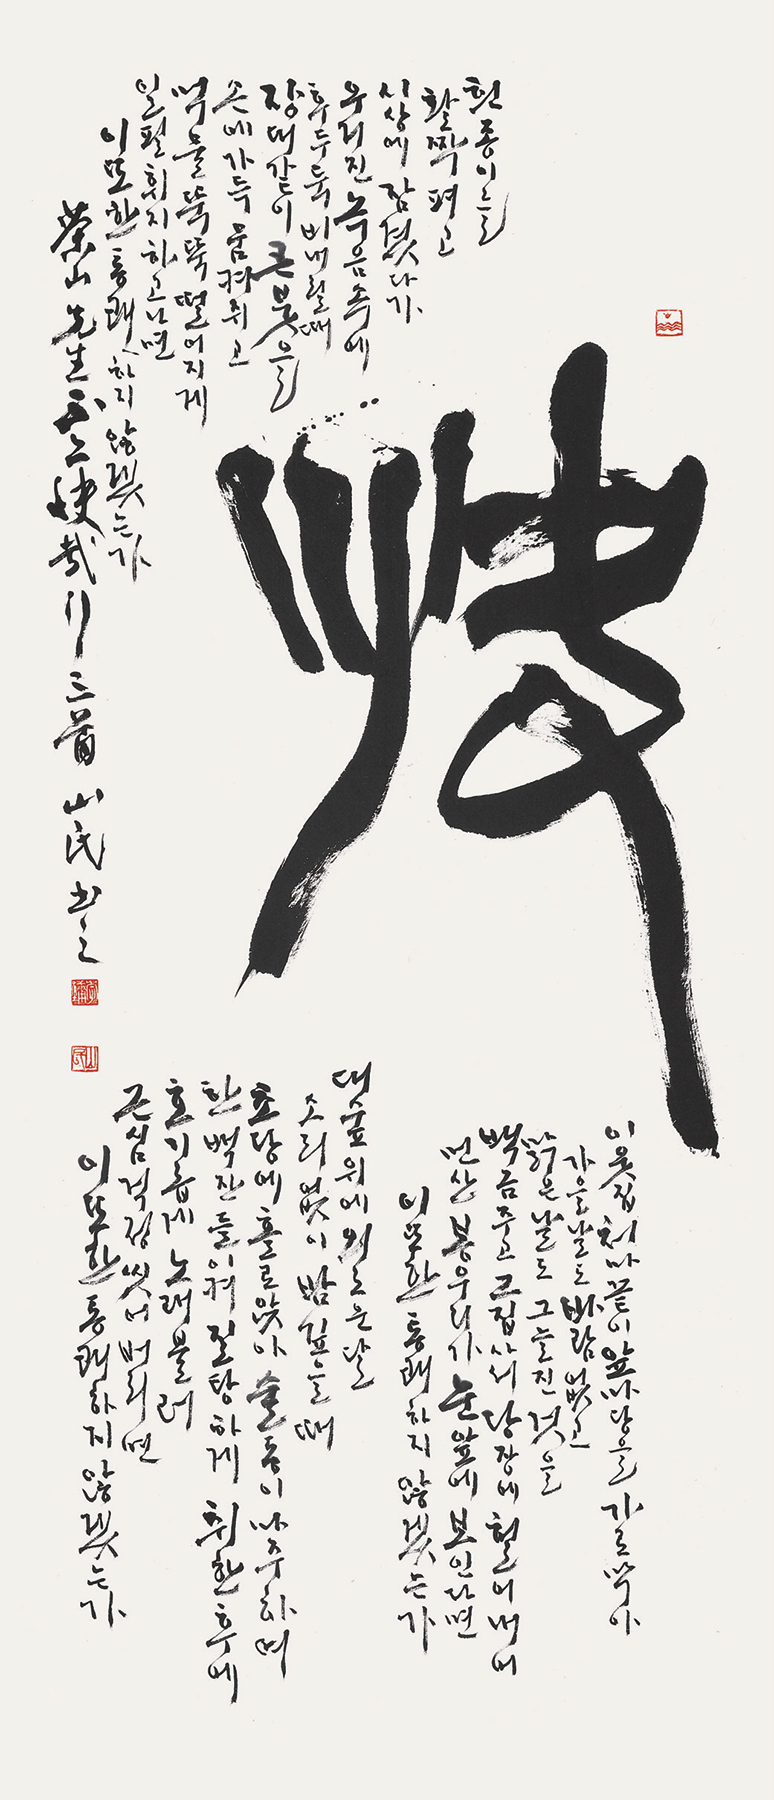 快
흰 종이를
활짝 펴고
시상에 잠겼다가
우거진 녹음 속에
후두둑 비내릴때
장대같이 큰 붓을
손에 가득 움켜쥐고
먹물 뚝뚝 떨어지게
일필휘지하고나면
이또한 통쾌하지 않겠는가
이웃집 처마끝이 앞마당을 가로막아
가을날도 바람없고
맑은날도 그늘진것을
백금주고 그집사서 당장에 헐어내어
먼산 봉우리가 눈앞에 보인다면
이또한 통쾌하지 않겠는가
대숲위에 외로운달
소리없이 밤깊을때
초당에 홀로앉아 술동이 마주하며
한백잔 들이켜 질탕하게 취한후에
호기롭게 노래불러
근심걱정 씻어버리면
이또한 통쾌하지 않겠는가
茶山先生不亦快哉行三首 山民書之
山民